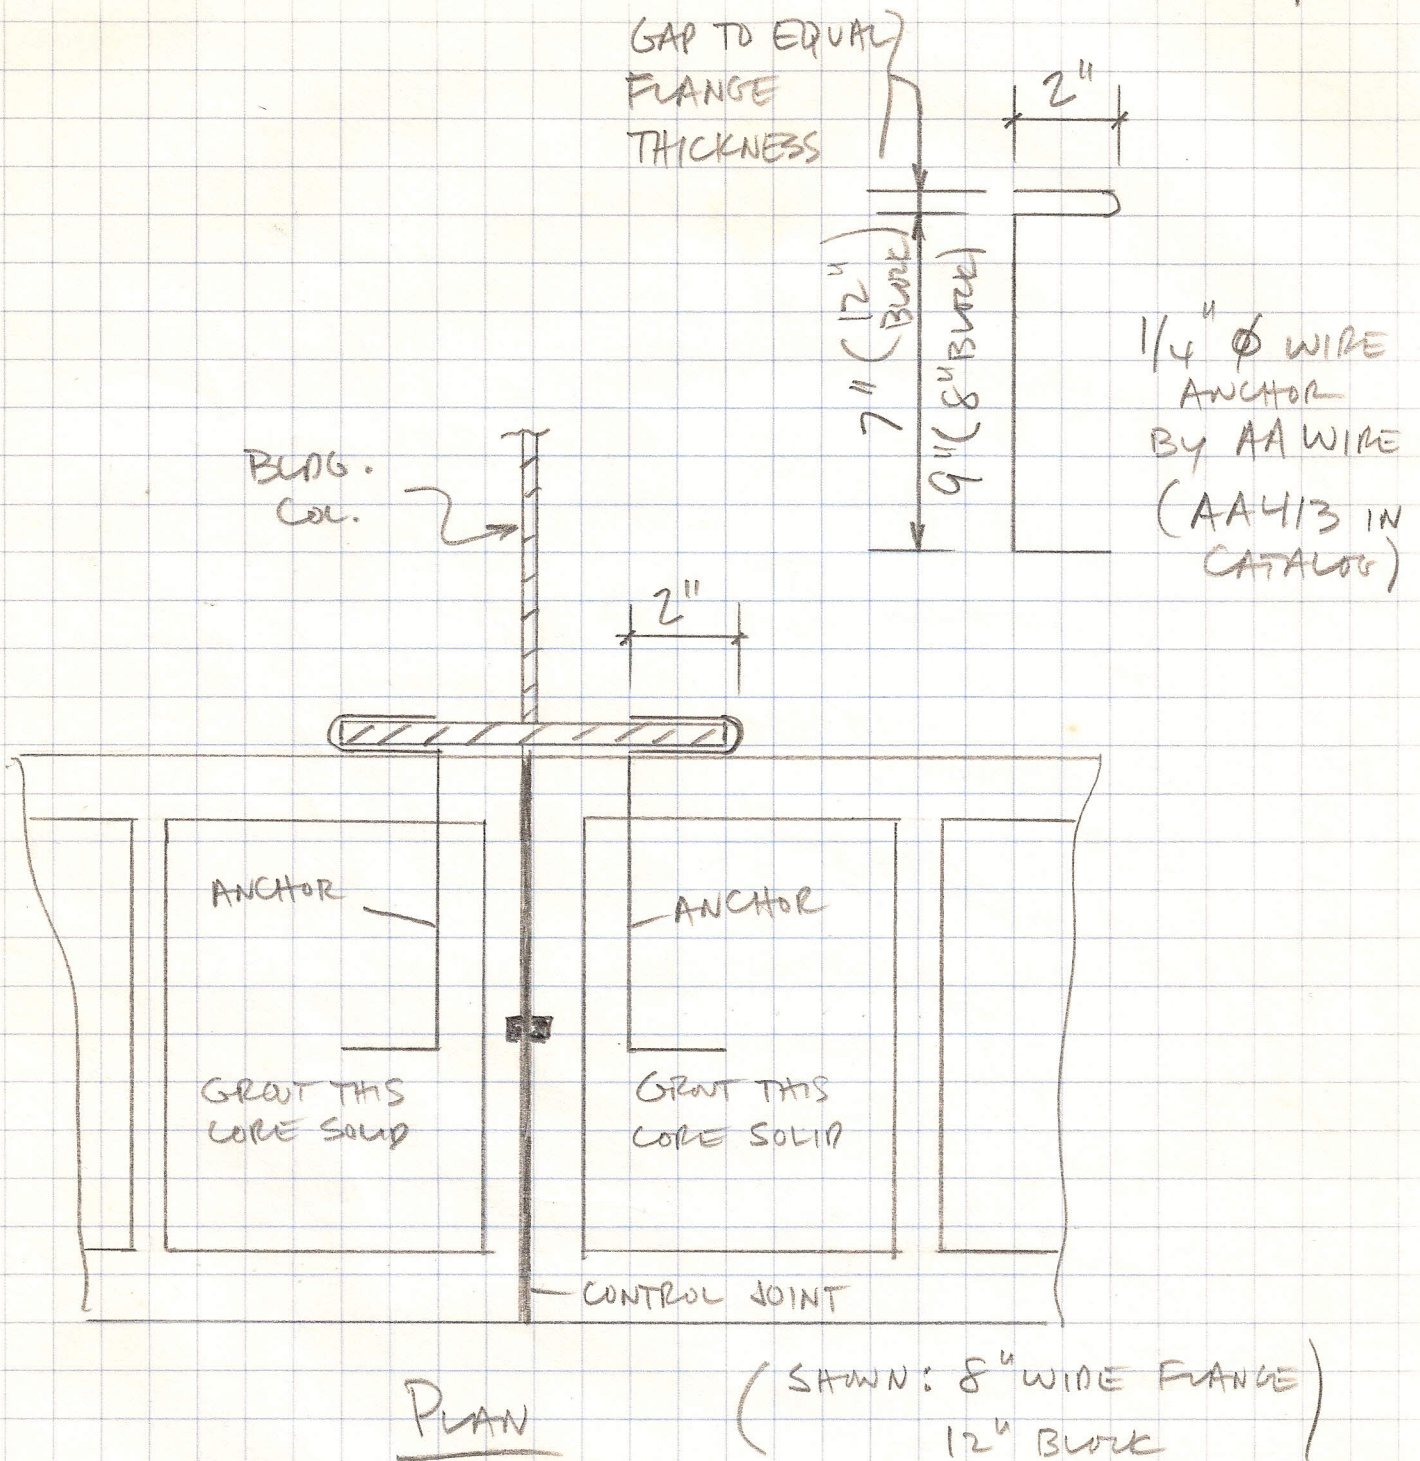 GAP TO EQUAL
FLANGE
THICKNESS
2"
7" (12"
BLOCK)
9" (8" BLOCK)
1/4" Ø WIRE
ANCHOR
BY AA WIRE
(AA413 IN
CATALOG)
BLDG.
COL.
2"
ANCHOR
ANCHOR
GROUT THIS
CORE SOLID
GROUT THIS
CORE SOLID
CONTROL JOINT
PLAN
(SHOWN: 8" WIDE FLANGE)
12" BLOCK